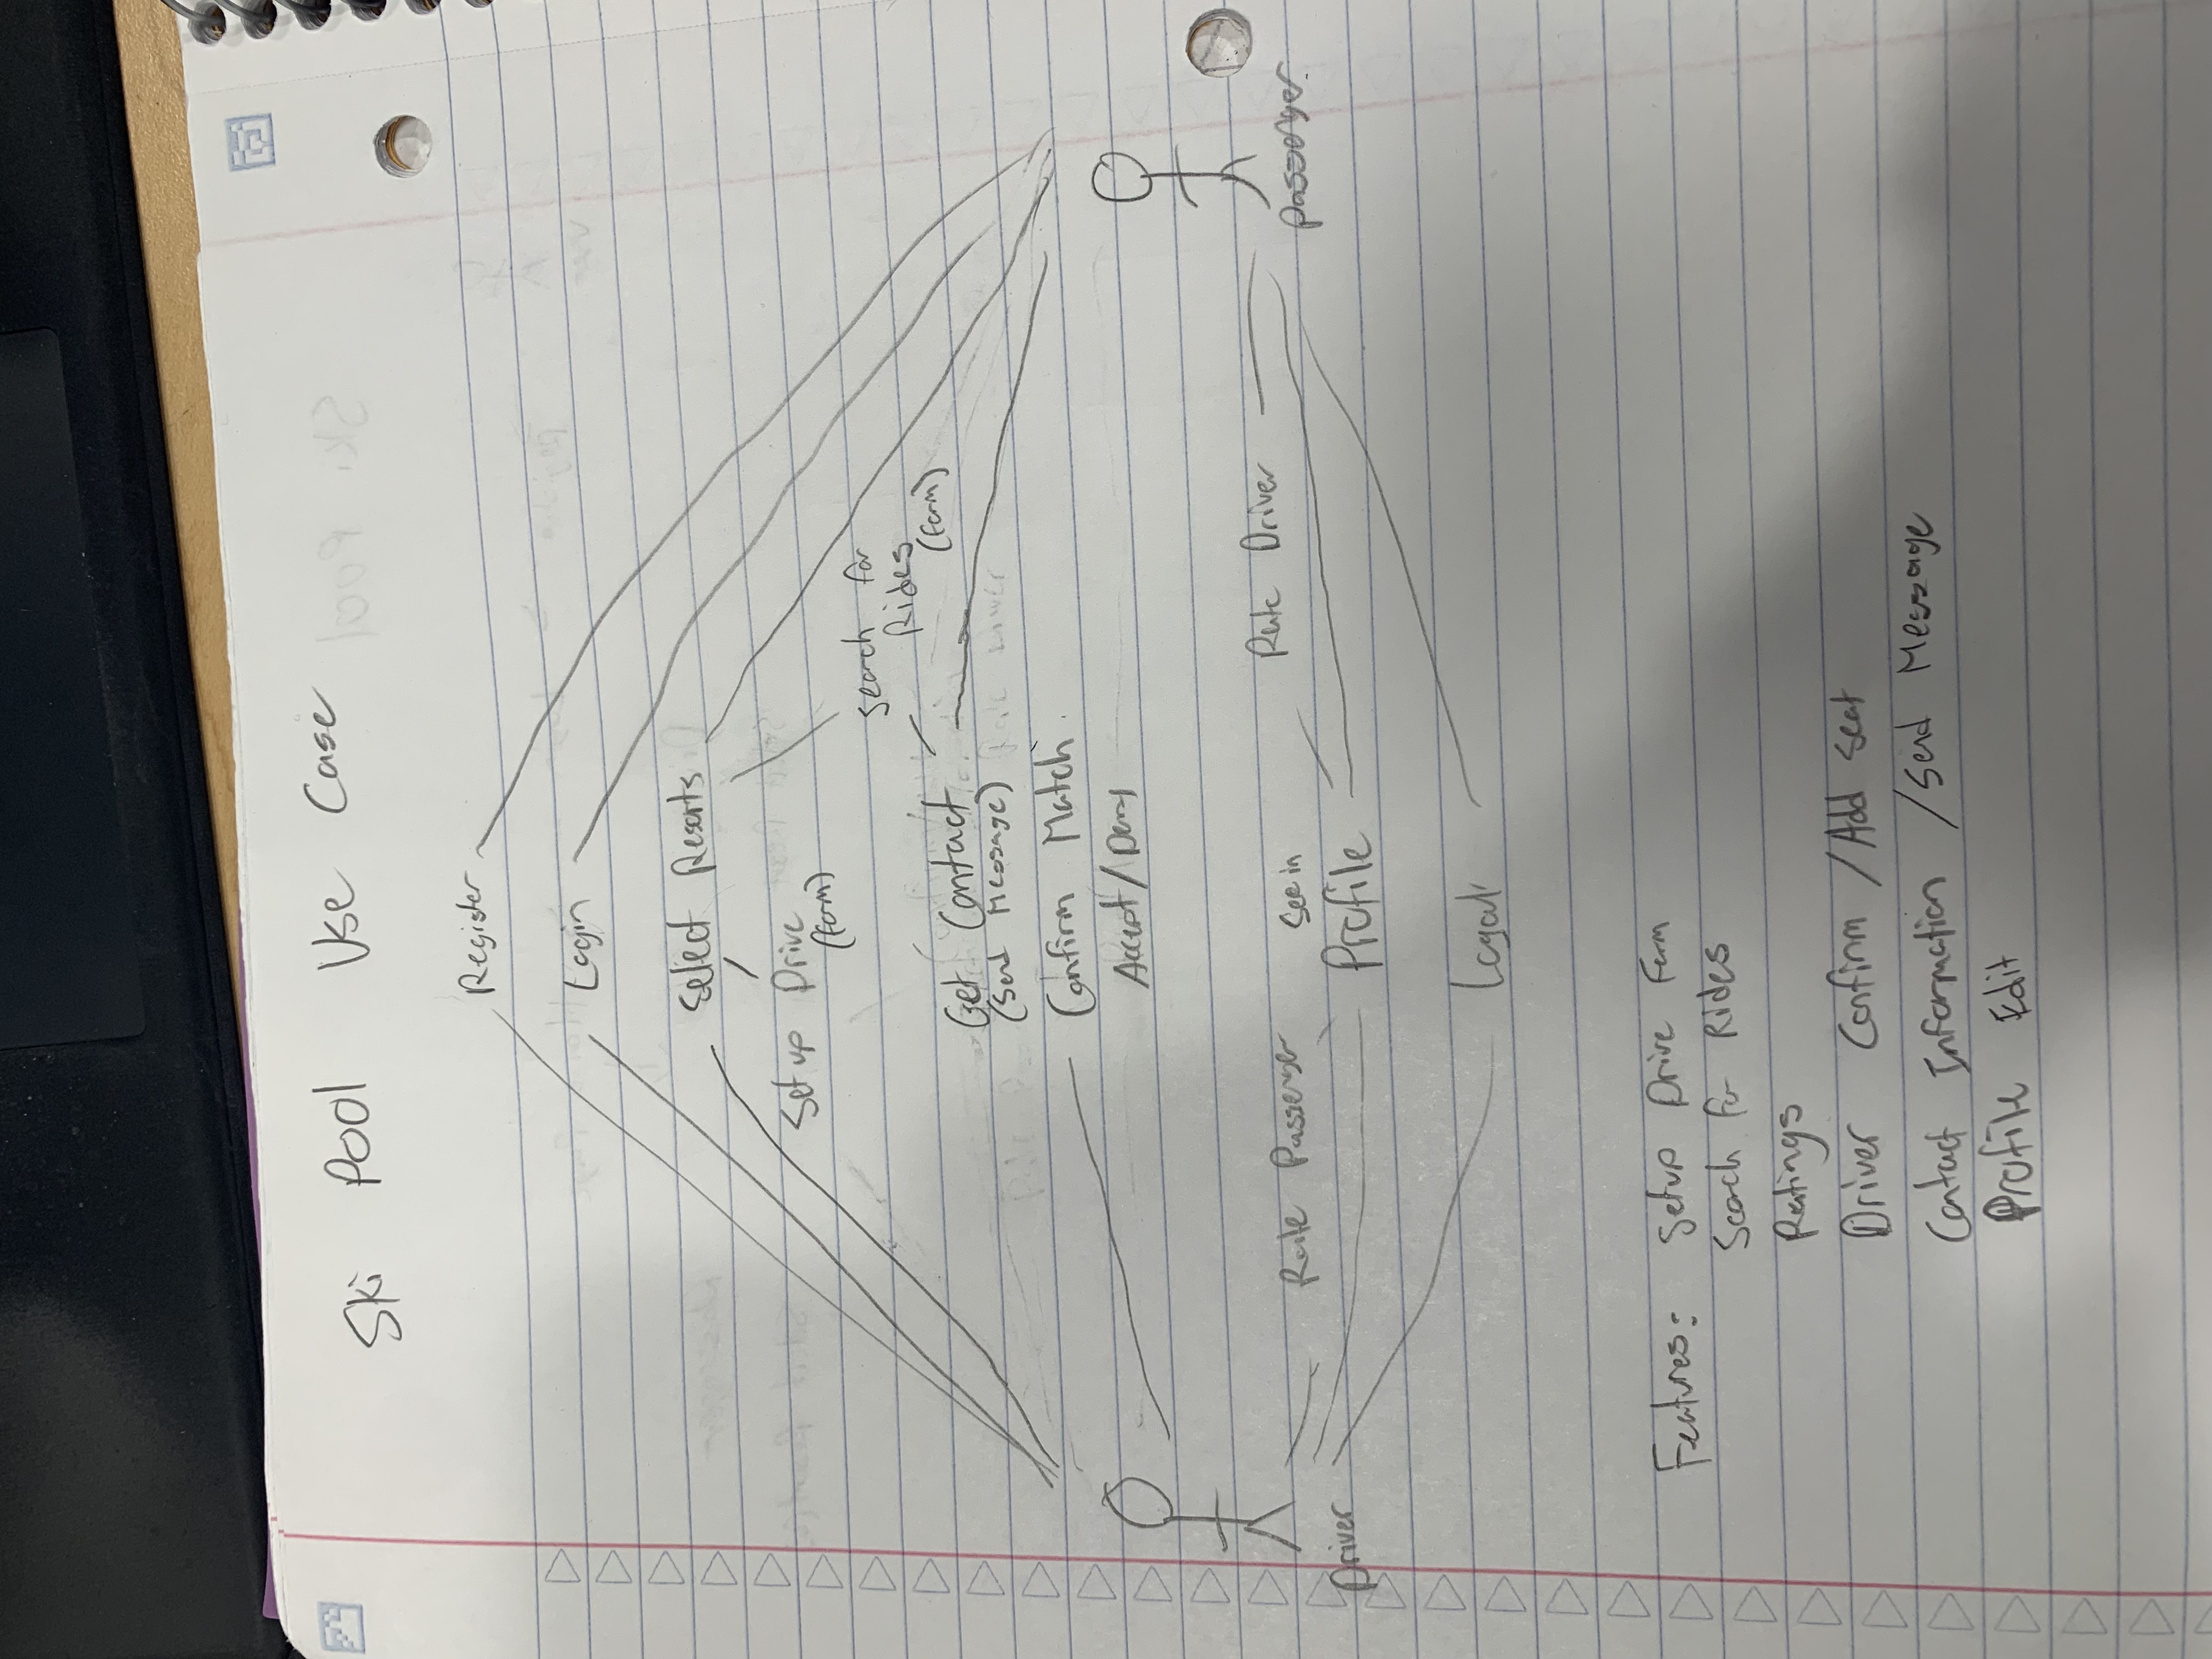 Ski Pool Use Case
Register
Login
Select Resorts
Setup Drive
(form)
Search for
Rides
(form)
Get Contact
(Send Message)
Confirm Match
Accept/Deny
Rate Passenger
See in
Rate Driver
Profile
Driver
Passenger
Logout
Features: Setup Drive Form
Search for Rides
Ratings
Driver Confirm / Add seat
Contact Information / Send Message
Profile Edit